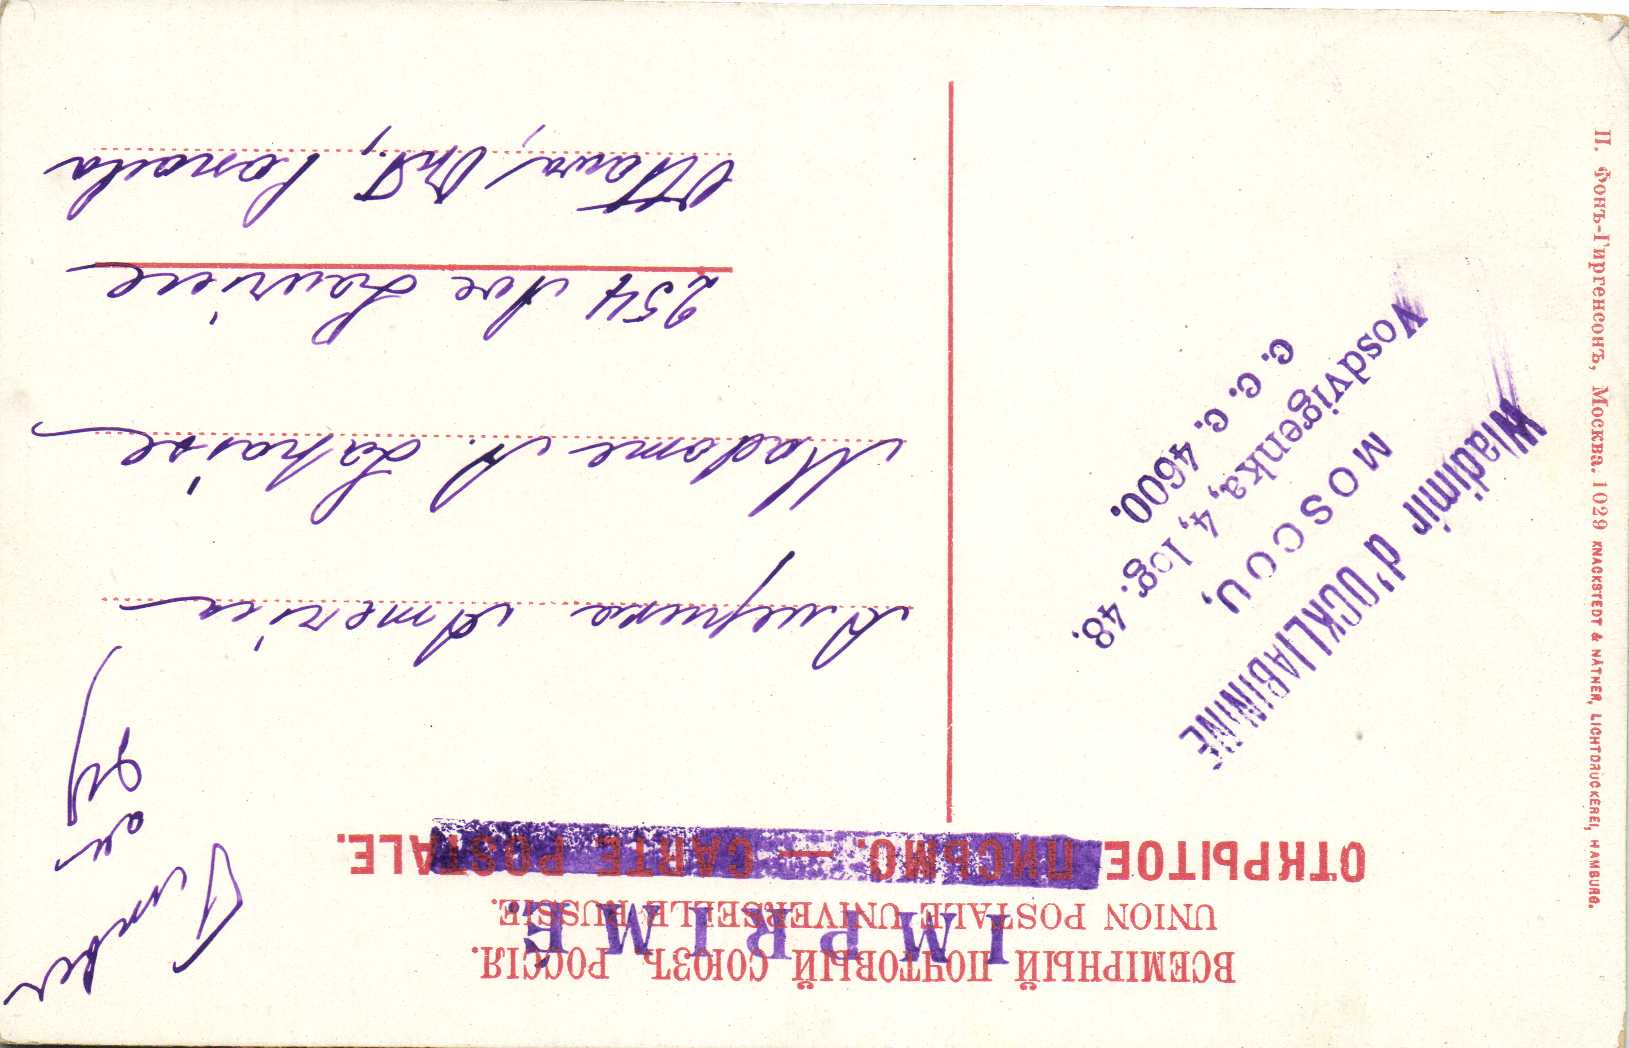 ВСЕМІРНЫЙ ПОЧТОВЫЙ СОЮЗЪ. РОССІЯ.
UNION POSTALE UNIVERSELLE RUSSIE.
IMPRIMÉ
ОТКРЫТОЕ ПИСЬМО. — CARTE POSTALE.
Timbre
au
Wladimir d'OCKLIABININE
MOSCOU,
Vosdvigenka, 4, log. 48.
c. c. c. 4600.
Америка America
Madame A. Lahaise
254 Ave Laurier
Ottawa, Ont., Canada
П. Фонъ-Гиргенсонъ, Москва. 1029 KNACKSTEDT & NÄTHER, LICHTDRUCKEREI, HAMBURG.